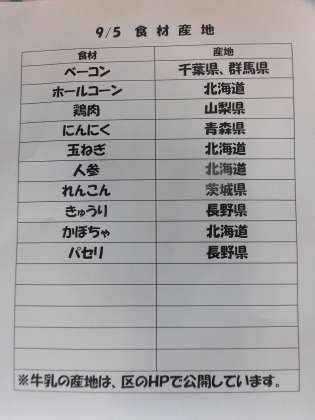 9/5 食材産地
食材 産地
ベーコン 千葉県、群馬県
ホールコーン 北海道
鶏肉 山梨県
にんにく 青森県
玉ねぎ 北海道
人参 北海道
れんこん 茨城県
きゅうり 長野県
かぼちゃ 北海道
パセリ 長野県
※牛乳の産地は、区のHPで公開しています。